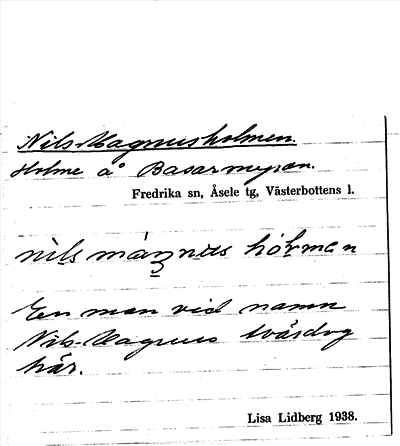 Nils-Magnusholmen.
Holme å Basarmyran.
Fredrika sn, Åsele tg, Västerbottens l.
nils máŋnus hólmen
En man vid namn
Nils-Magnus
här.
Lisa Lidberg 1938.